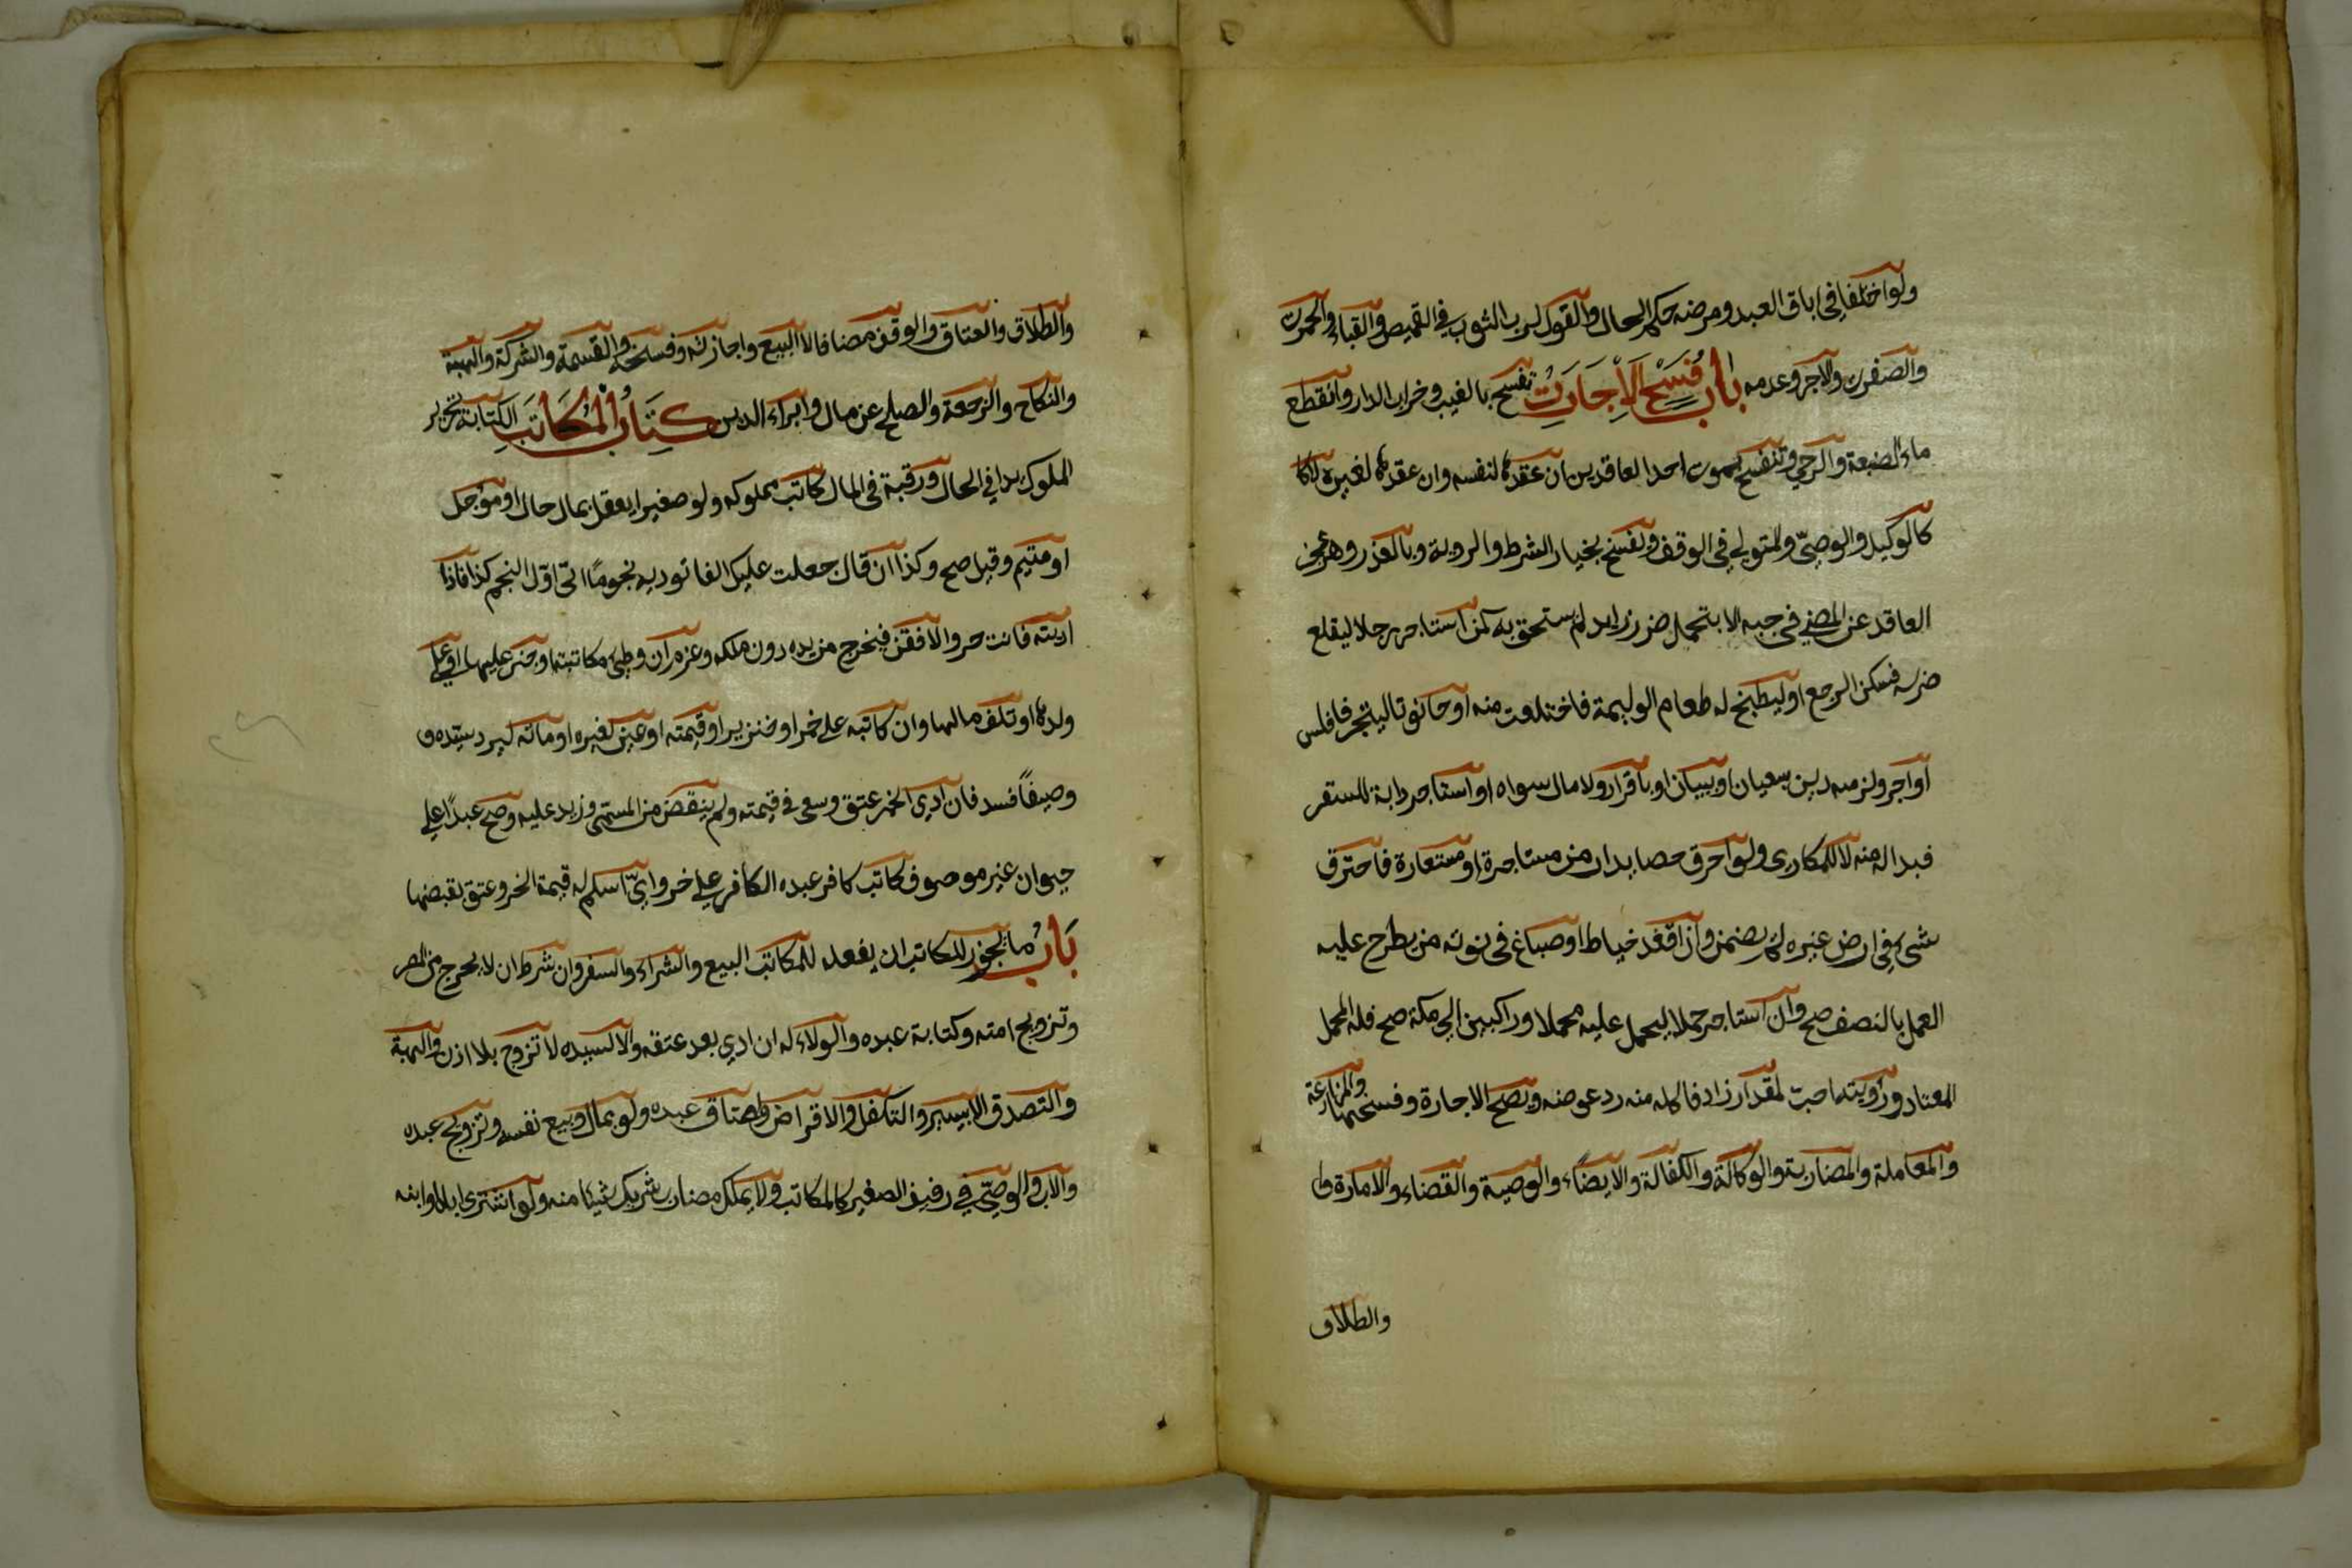 ولو اختلفا في اباق العبد ومرضه حكم الحال والقول لرب الثوب في القميص والقباء والحمرت
والصفرت والاجر وعدمه باب فسخ الاجارت تفسخ بالعيب وخراب الدار وانقطع
ماء الضيعة والرحي وتنفسخ بموت احد العاقدين ان عقدها لنفسه وان عقدها لغيره لا كا
كالوكيل والوصيّ والمتولي في الوقف وتفسخ بخيار الشرط والروية وبالعذر وهو عجز
العاقد عن المضي في جبه الا بتحمل ضرر زايد لم يستحق به كمن استاجر رجلا ليقلع
ضرسه فسكن الوجع او ليطبخ له طعام الوليمة فاختلعت منه او حانوتا ليتجر فافلس
او اجر ولزمه دين بعيان او ببيان او باقرار ولا مال سواه او استاجر دابة للسفر
فبدا له منه لا للمكاري ولو احرق حصايد ارض مستاجرة او مستعارة فاحترق
شيء في ارض غيره لم يضمن وان اقعد خياط او صباغ في حانوته من يطرح عليه
العمل بالنصف صح وان استاجر جملا ليحمل عليه محملا وراكبين الي مكة صح فله المحمل
المعتاد ورؤيته احب لمقدار زاد فاكله منه رد عوضه وتصح الاجارة وفسخها والمزارعة
والمعاملة والمضاربة والوكالة والكفالة والايضاء والوصية والقضاء والامارة وا
والطلاق
والطلاق والعتاق والوقف مضافا لا البيع واجازته وفسخه والقسمة والشركة والهبة
والنكاح والرجعة والصلح عن مال وابراء الدين كتاب المكاتب الكتابة تحرير
المملوك يدا في الحال ورقبة في المال كاتب مملوكه ولو صغيرا يعقل بمال حال او مؤجل
او منجم وقبل صح وكذا ان قال جعلت عليك الفا توديه نجومًا اتى اوّل النجم كذا فاذا
اديته فانت حر والا فقن فيخرج من يده دون ملكه وغرم ان وطئ مكاتبته او جنى عليها او علي
ولدها او تلف مالها وان كاتبه علي خمر او خنزير او قيمته او عين لغيره او ماته ليرد سيّده و
وصيفًا فسد فان ادي الخمر عتق وسعي في قيمته ولم ينقص من المسمّى وزيد عليه وصح عبدًا علي
حيوان غير موصوف كاتب كافر عبده الكافر علي خمر وايّ اسلم له قيمة الخمر وعتق بقبضها
باب ما يجوز للمكاتب ان يفعله للمكاتب البيع والشراء والسفر وان شرط ان لا يخرج من المصر
وتزويج امته وكتابة عبده والولاء له ان ادي بعد عتقه والا لسيده لا تزوج بلا اذن والهبة
والتصدق الا بيسير والتكفل والاقراض واعتاق عبده ولو بمال وبيع نفسه وتزويج عبده
والاب والوصيّ في رقيق الصغير كالمكاتب ولا يملك مضارب شريك شيئا منه ولو اشترى اباه او ابنه